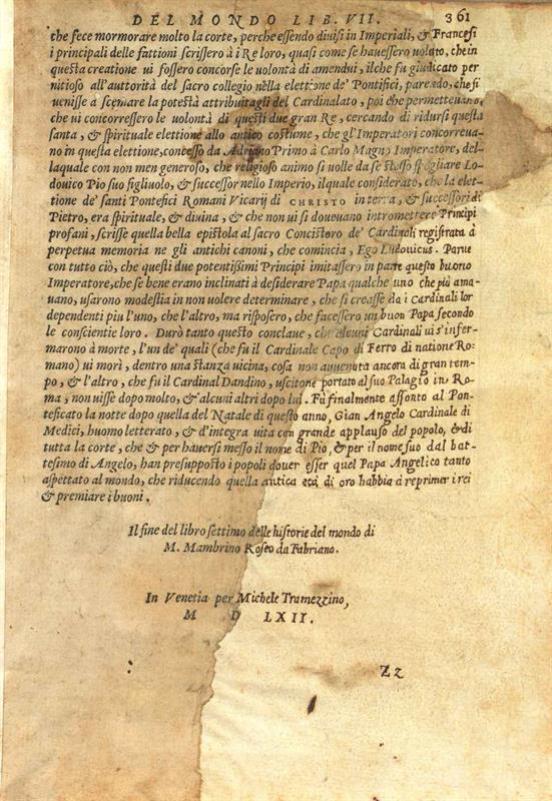 DEL MONDO LIB. VII. 361
che fece mormorare molto la corte, perche essendo diuisi in Imperiali, & Francesi
i principali delle fattioni scrissero à i Re loro, quasi come se hauessero uolato, che in
questa creatione ui fossero concorse le uolontà di amendui, ilche fu giudicato per
nitioso all'auttorità del sacro collegio nella elettione de' Pontifici, parendo, che si
uenisse à scemare la potestà attribuitagli del Cardinalato, poi che permetteuano,
che ui concorressero le uolontà di questi due gran Re, cercando di ridursi questa
santa, & spirituale elettione allo antico costume, che gl'Imperatori concorreua-
no in questa elettione, concesso da Adriano Primo à Carlo Magno Imperatore, del-
laquale con non men generoso, che religioso animo si uolle da se stesso spogliare Lo-
douico Pio suo figliuolo, & successor nello Imperio, ilquale considerato, che la elet-
tione de' santi Pontefici Romani Vicarij di CHRISTO in terra, & successori di
Pietro, era spirituale, & diuina, & che non ui si doueuano intromettere Principi
profani, scrisse quella bella epistola al sacro Concistoro de' Cardinali registrata à
perpetua memoria ne gli antichi canoni, che comincia, Ego Ludouicus. Parue
con tutto ciò, che questi due potentissimi Principi imitassero in parte questo buono
Imperatore, che se bene erano inclinati à desiderare Papa qualche uno che più ama-
uano, usarono modestia in non uolere determinare, che si creasse da i Cardinali lor
dependenti piu l'uno, che l'altro, ma risposero, che facessero un buon Papa secondo
le conscientie loro. Durò tanto questo conclaue, che alcuni Cardinali ui s'infer-
marono à morte, l'un de' quali (che fu il Cardinale Capo di Ferro di natione Ro-
mano) ui morì, dentro una stanza uicina, cosa non auuenuta ancora di gran tem-
po, & l'altro, che fu il Cardinal Dandino, uscitone portato al suo Palagio in Ro-
ma, non uisse dopo molto, & alcuni altri dopo lui. Fù finalmente assonto al Pon-
teficato la notte dopo quella del Natale di questo anno, Gian Angelo Cardinale di
Medici, huomo letterato, & d'integra uita con grande applauso del popolo, & di
tutta la corte, che & per hauersi messo il nome di Pio, & per il nome suo dal bat-
tesimo di Angelo, han presupposto i popoli douer esser quel Papa Angelico tanto
aspettato al mondo, che riducendo quella antica età di oro habbia à reprimer i rei
& premiare i buoni.
Il fine del libro settimo delle historie del mondo di
M. Mambrino Roseo da Fabriano.
In Venetia per Michele Tramezzino,
M D LXII.
Zz